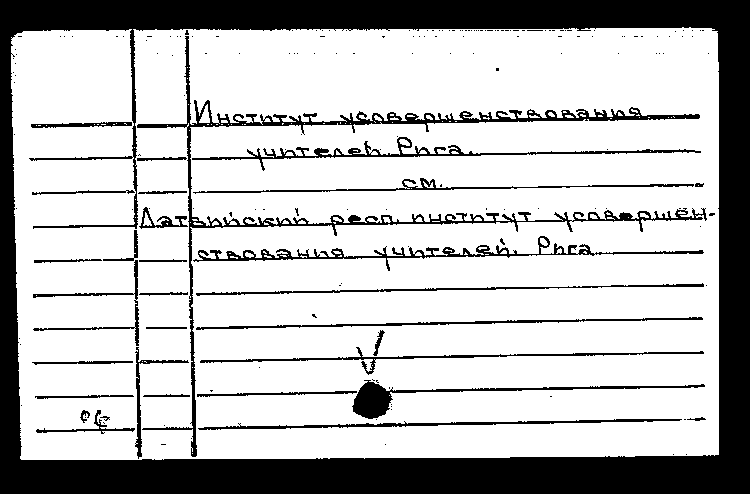 Институт усовершенствования
учителей. Рига.
см.
Латвийский респ. институт усовершен-
ствования учителей. Рига